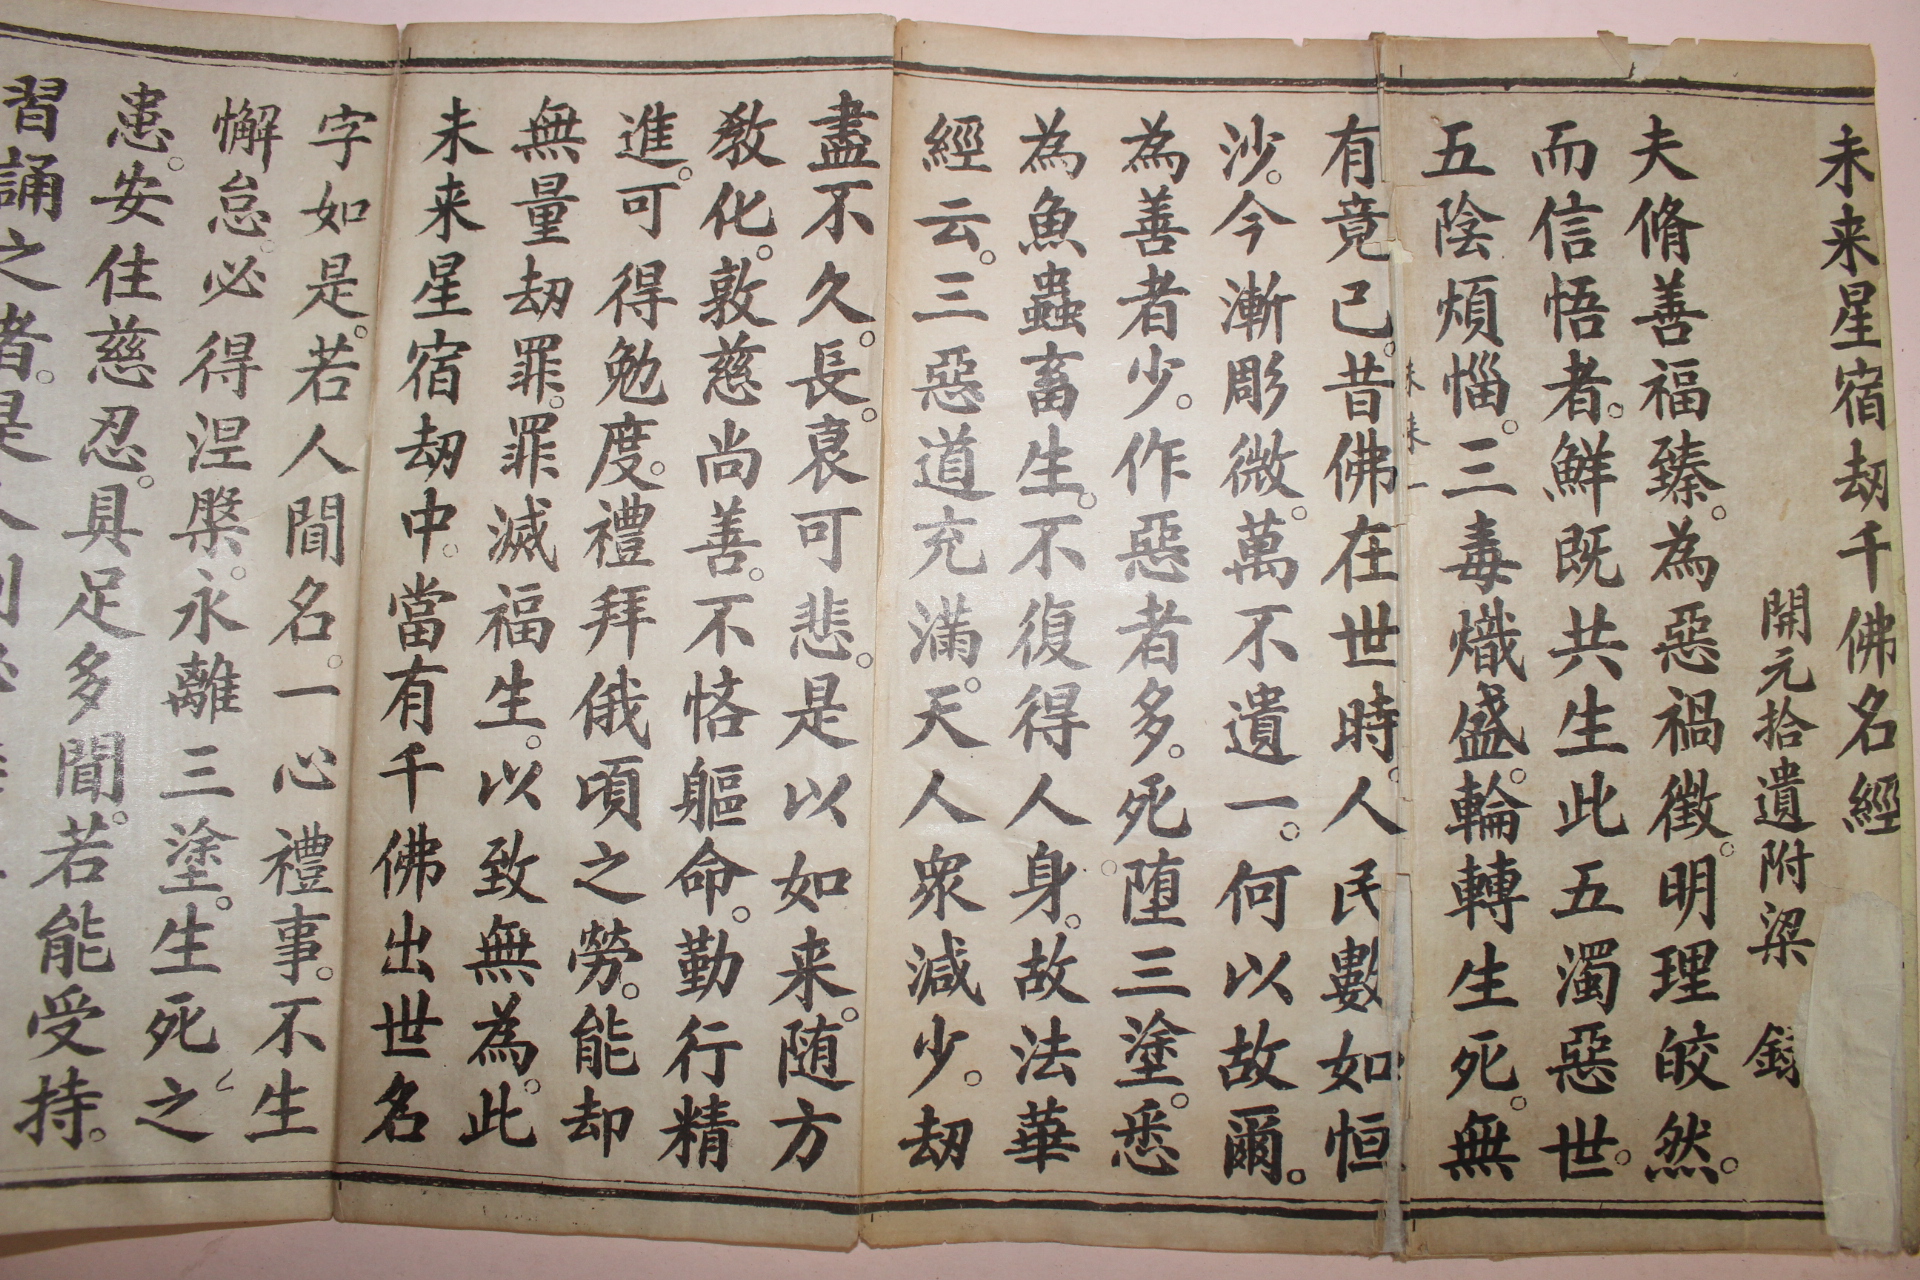 未来星宿劫千佛名經
開元拾遺附梁 錄
夫脩善福臻。為惡禍徵。明理皎然。
而信悟者。鮮既共生此五濁惡世。
五陰煩惱。三毒熾盛。輪轉生死。無
未来 一
有竟已。昔佛在世時。人民數如恒
沙。今漸彫微。萬不遺一。何以故爾。
為善者少。作惡者多。死。堕三塗。悉
為魚蟲畜生。不復得人身。故法華
經云。三惡道充滿。天人衆減少。劫
盡不久。長。衰可悲。是以如来。随方
教化。敦慈尚善。不悋軀命。勤行精
進。可得勉度。禮拜俄頃之勞。能却
無量劫罪。罪滅福生。以致無為。此
未来星宿劫中。當有千佛出世名
字如是。若人聞名。一心禮事。不生
懈怠。必得涅槃。永離三塗。生死之
患。安住慈忍。具足多聞。若能受持。
習誦之者。是人